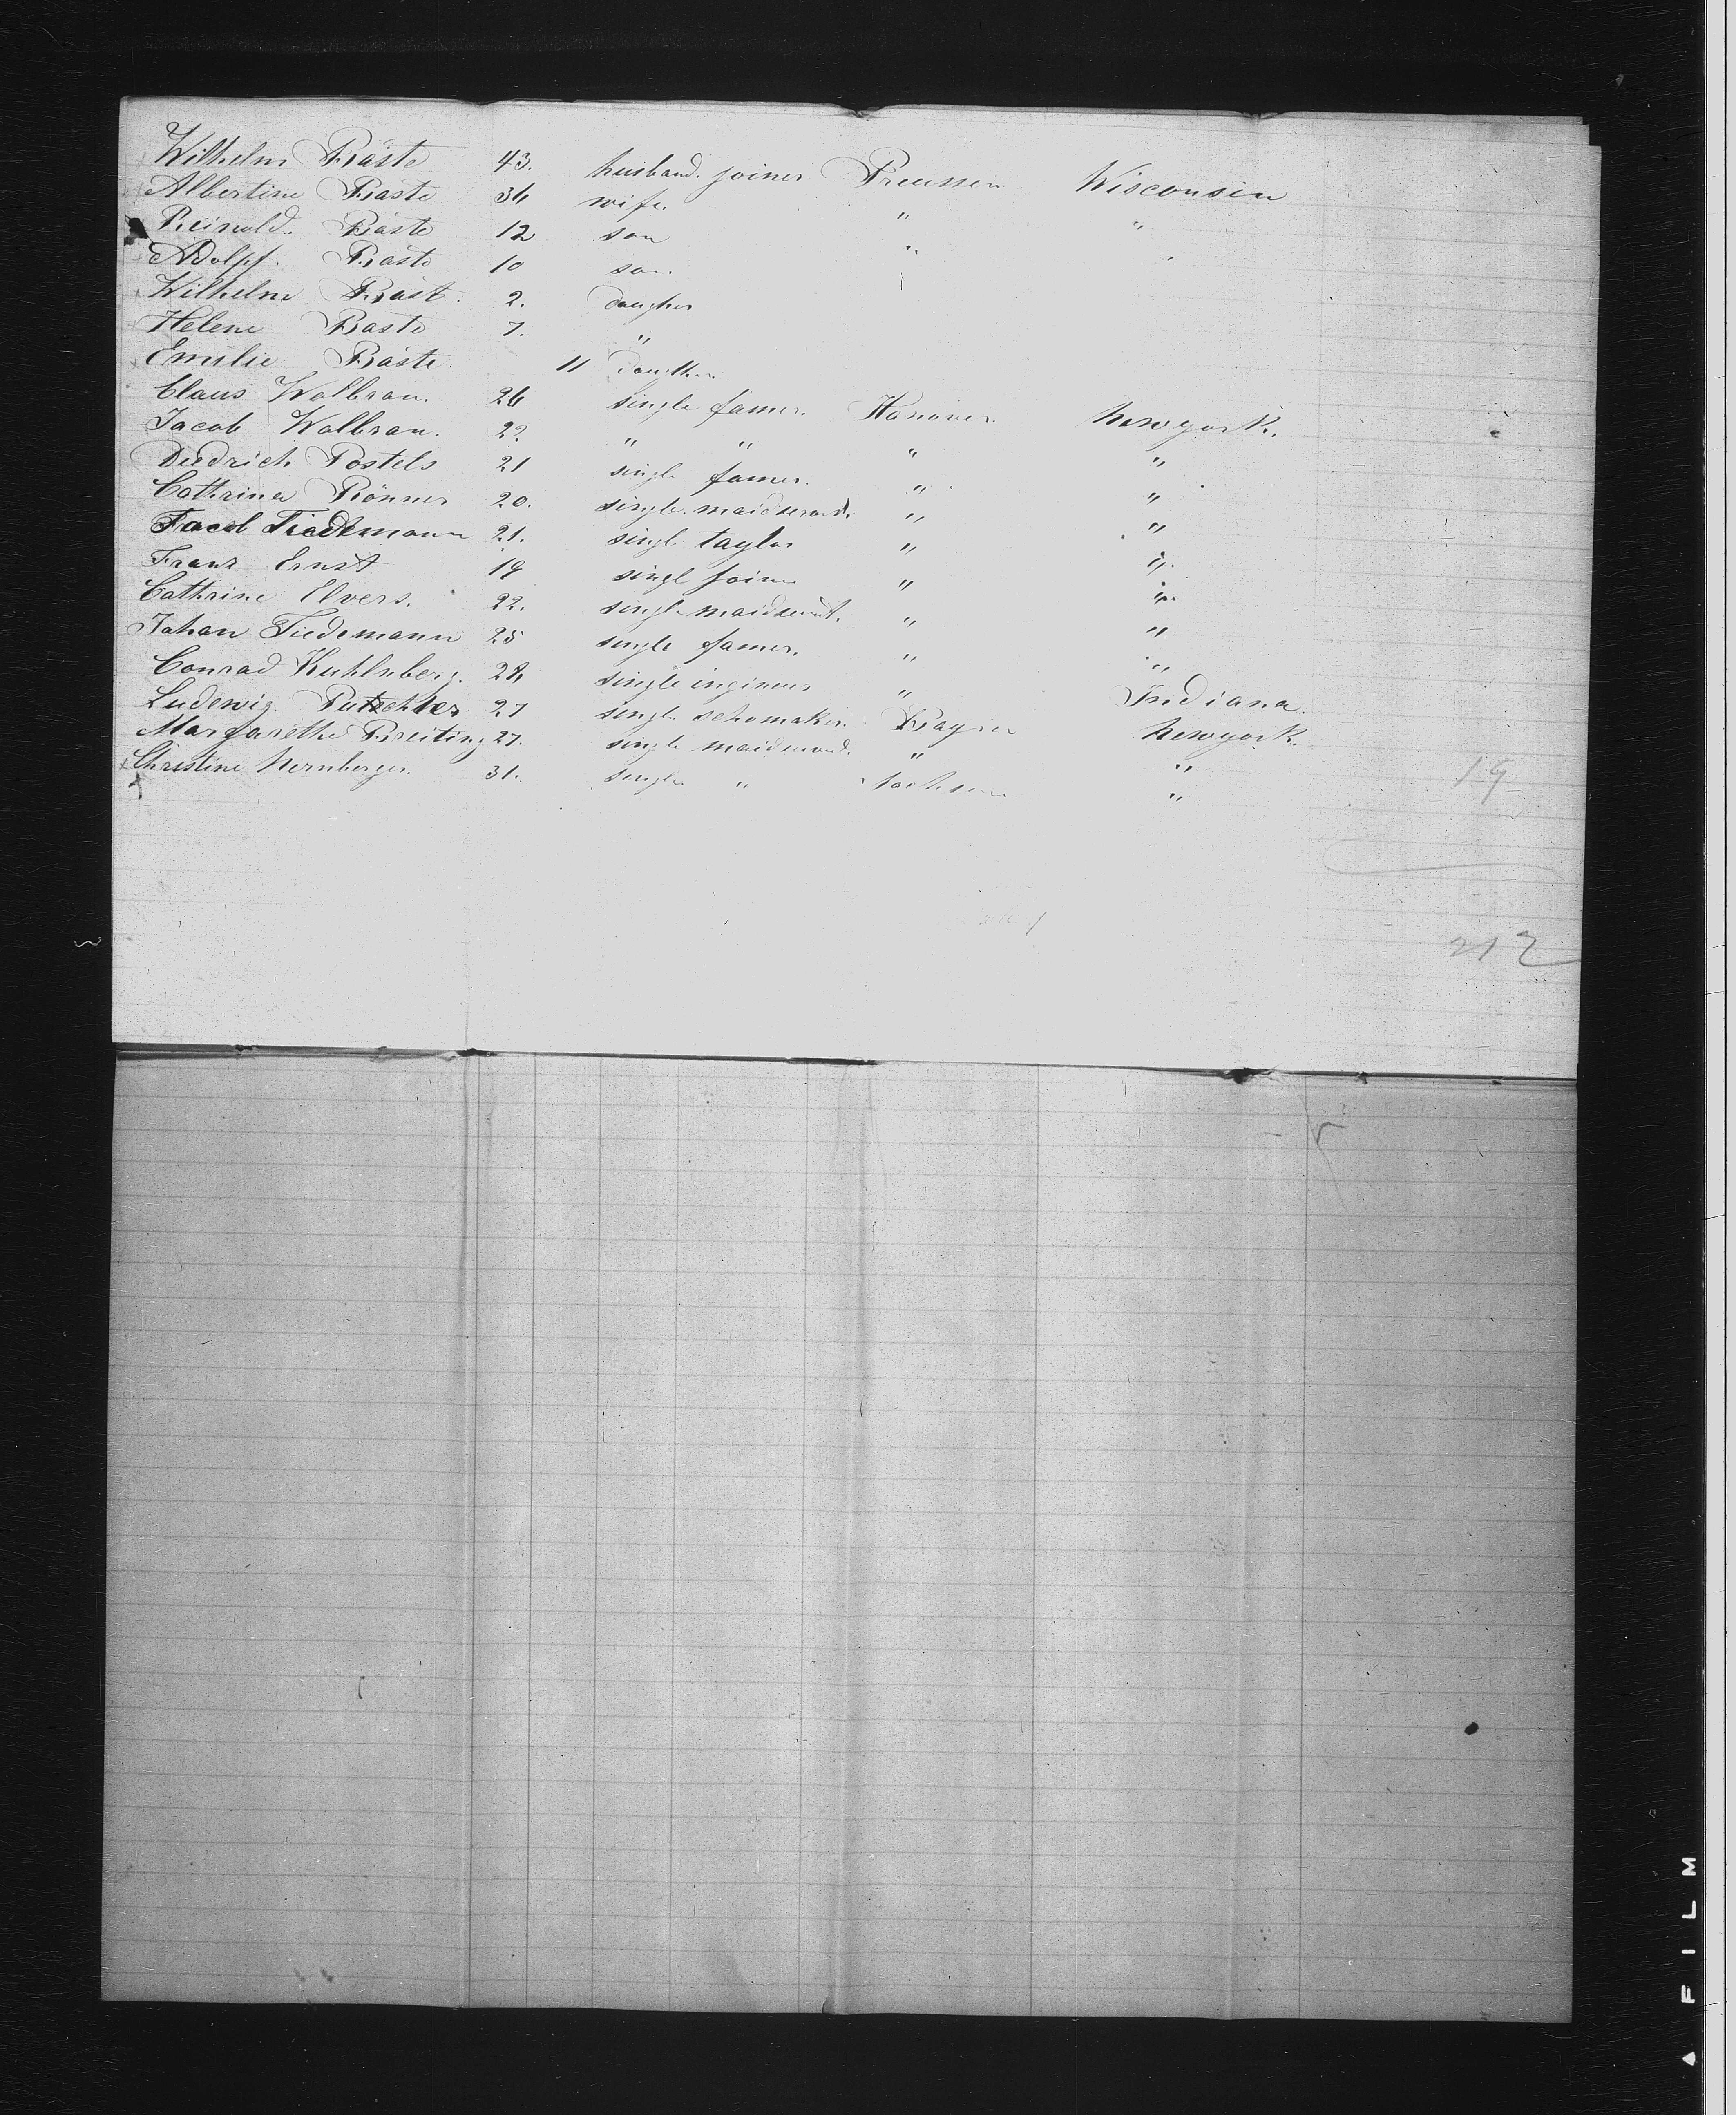 Wilhelm Räste 43. husband. joiner Preussen Wisconsin
Albertine Räste 36 wife. " "
Reinold. Räste 12 son "
Adolpf. Räste 10 son
Wilhelm Räst. 2. daugher
Helene Räste 7. "
Emilie Räste 11 daugther
Claus Wolbran. 26 single famer. Hanover Newyork.
Jacob Wolbran. 22. " " " "
Diedrich Postels 21 single famer. " "
Cathrina Rönner 20. single. maidservand. " "
Jacob Tiedemann 21. singl taylor " "
Franz Ernst 19 singl joiner " "
Cathrine Elvers. 22. single maidservant. " "
Johan Tiedemann 25 single famer. " "
Conrad Kuhlnberg. 28 single ingineur " Indiana.
Ludewig 27 single schomaker. Bayern Newyork.
Margarethe Breiting 27. single maidservand. " "
Christine Nernberger. 31. single " Sachsen "
19
212
FILM